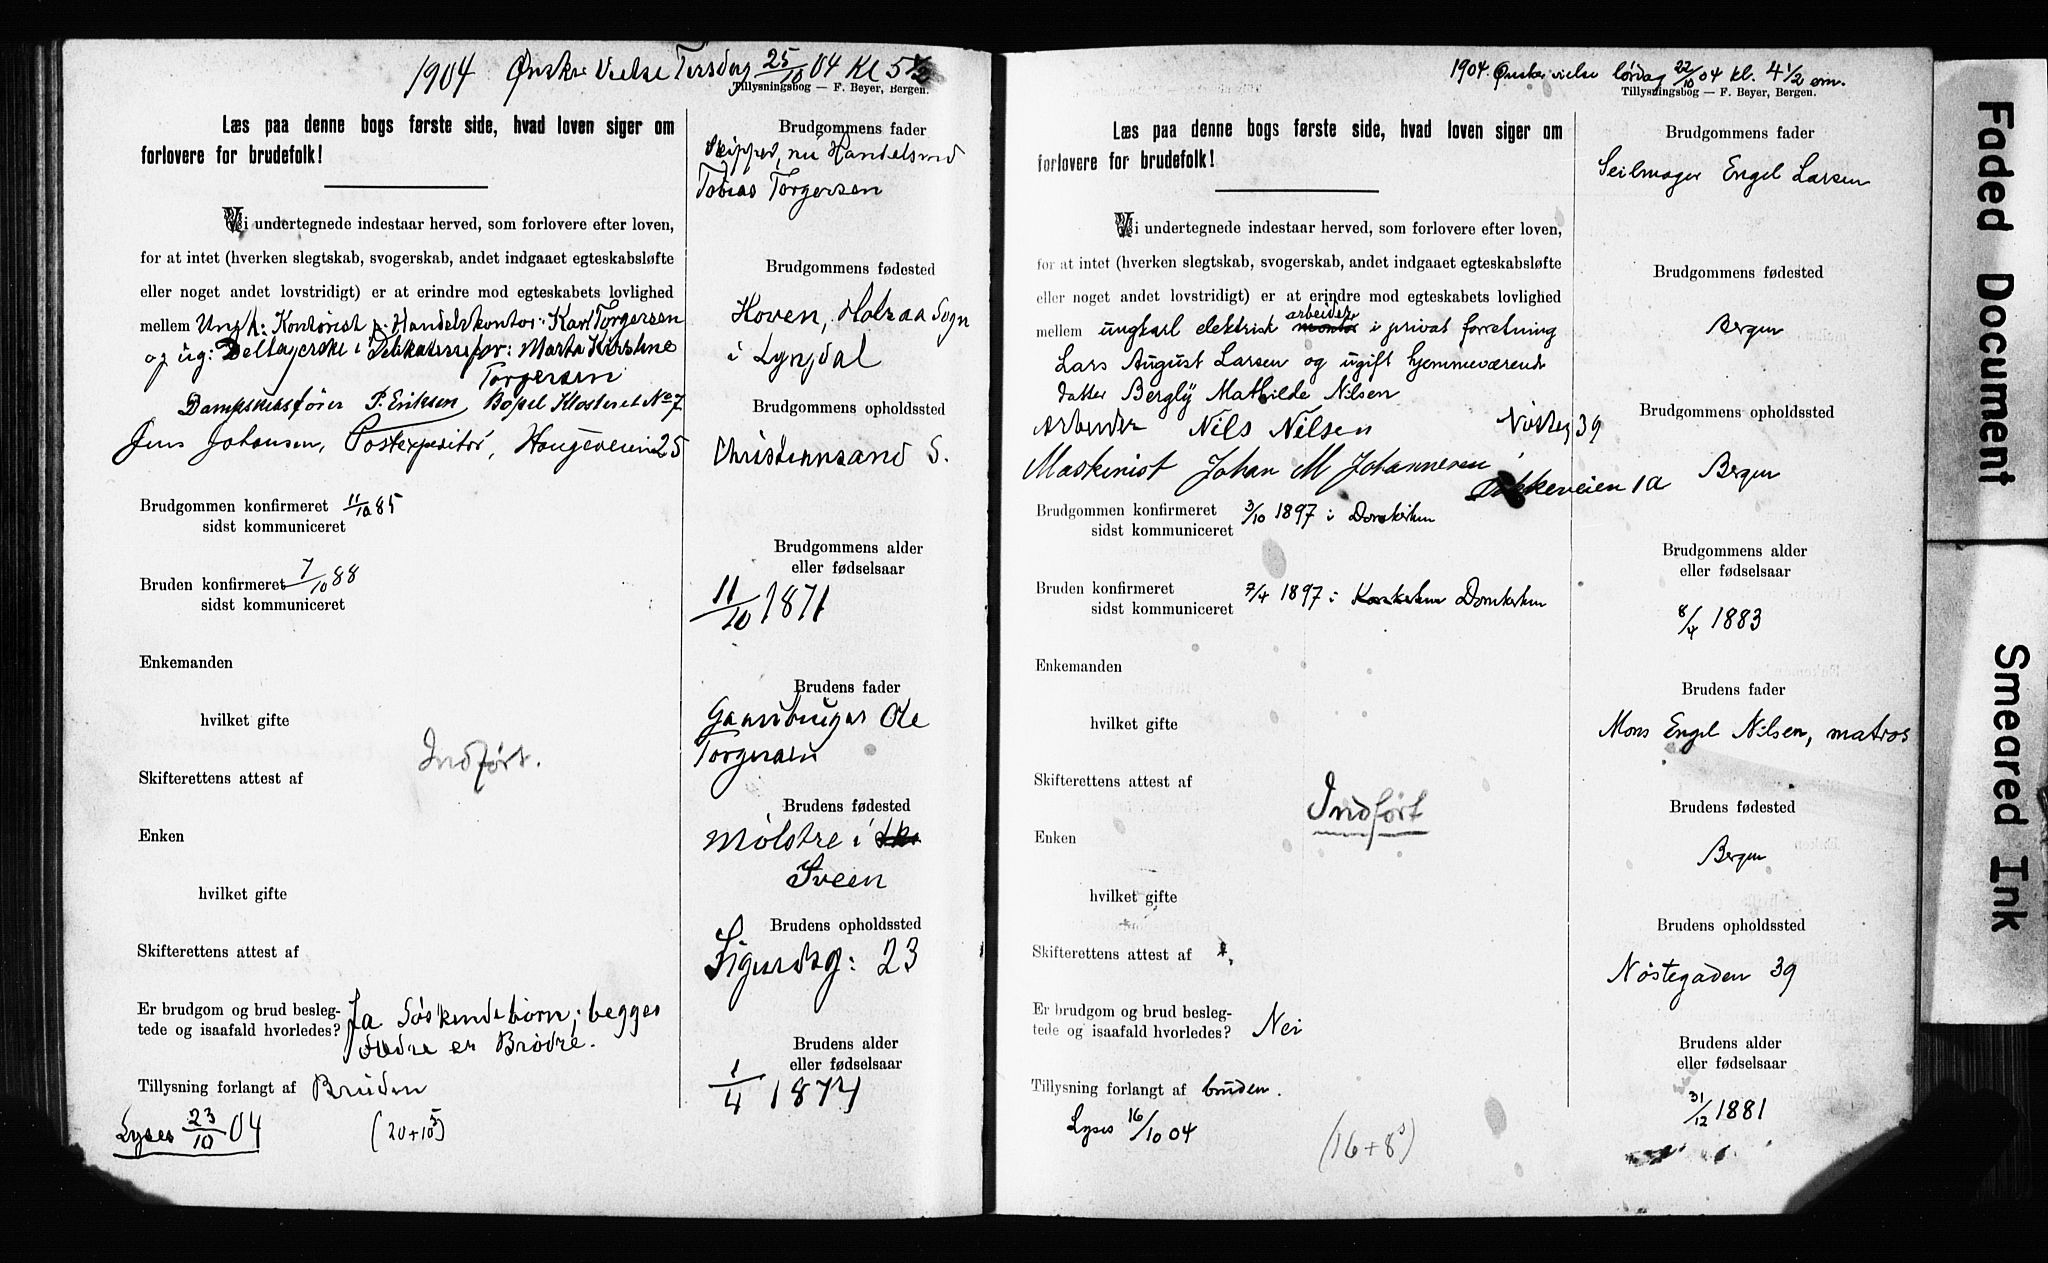 1904 Ønske Vielse Tirsdag 25/10 04 Kl 5 1/2
Tillysningsbog — F. Beyer, Bergen.
Læs paa denne bogs første side, hvad loven siger om
forlovere for brudefolk!
Vi undertegnede indestaar herved, som forlovere efter loven,
for at intet (hverken slegtskab, svogerskab, andet indgaaet egteskabsløfte
eller noget andet lovstridigt) er at erindre mod egteskabets lovlighed
mellem Ungk: Kontorist p. Handelskontor: Karl Torgersen
og ug: Deltagerske i Delikatesseforr: Marta Kirstine
Torgersen
Dampskibsfører P. Eriksen Bopel Klosteret No 7
Jens Johansen, Postexpeditør, Haugeveien 25
Brudgommen konfirmeret 11/10 85
sidst kommuniceret
Bruden konfirmeret 7/10 88
sidst kommuniceret
Enkemanden
hvilket gifte
Indført.
Skifterettens attest af
Enken
hvilket gifte
Skifterettens attest af
Er brudgom og brud besleg-
tede og isaafald hvorledes? Ja Søskendebörn; begges
Fædre er Brødre.
Tillysning forlangt af Bruden
Lyses 23/10 04
(20+10 5)
Brudgommens fader
Skipper, nu Handelsmd
Tobias Torgersen
Brudgommens fødested
Hoven, Holraa Sogn
i Lyngdal
Brudgommens opholdssted
Christiansand S.
Brudgommens alder
eller fødselsaar
11/10 1871
Brudens fader
Gaardbruger Ole
Torgersen
Brudens fødested
Mølstre i
Sveen
Brudens opholdssted
Sigurdsg: 23
Brudens alder
eller fødselsaar
1/4 1874
1904. Ønskes vielse lørdag 22/10 04 kl. 4 1/2 em.
Tillysningsbog — F. Beyer, Bergen.
Læs paa denne bogs første side, hvad loven siger om
forlovere for brudefolk!
Vi undertegnede indestaar herved, som forlovere efter loven,
for at intet (hverken slegtskab, svogerskab, andet indgaaet egteskabsløfte
eller noget andet lovstridigt) er at erindre mod egteskabets lovlighed
arbeider
mellem ungkarl elektrisk montør i privat forretning
Lars August Larsen og ugift hjemmeværende
datter Bergly Mathilde Nilsen
Arbeider Nils Nilsen Nösteg 39
Maskinist Johan M Johannesen
Dokkeveien 1a
Brudgommen konfirmeret 3/10 1897 i Domkirken
sidst kommuniceret
Bruden konfirmeret 7/4 1897 i Korskirken Domkirken
sidst kommuniceret
Enkemanden
hvilket gifte
Skifterettens attest af
Indført
Enken
hvilket gifte
Skifterettens attest af
Er brudgom og brud besleg-
tede og isaafald hvorledes? Nei
Tillysning forlangt af bruden.
Lyses 16/10 04
(16+8 3)
Brudgommens fader
Seilmager Engel Larsen
Brudgommens fødested
Bergen
Brudgommens opholdssted
Bergen
Brudgommens alder
eller fødselsaar
8/4 1883
Brudens fader
Mons Engel Nilsen, matros
Brudens fødested
Bergen
Brudens opholdssted
Nöstegaden 39
Brudens alder
eller fødselsaar
31/12 1881
Faded Document
Smeared Ink